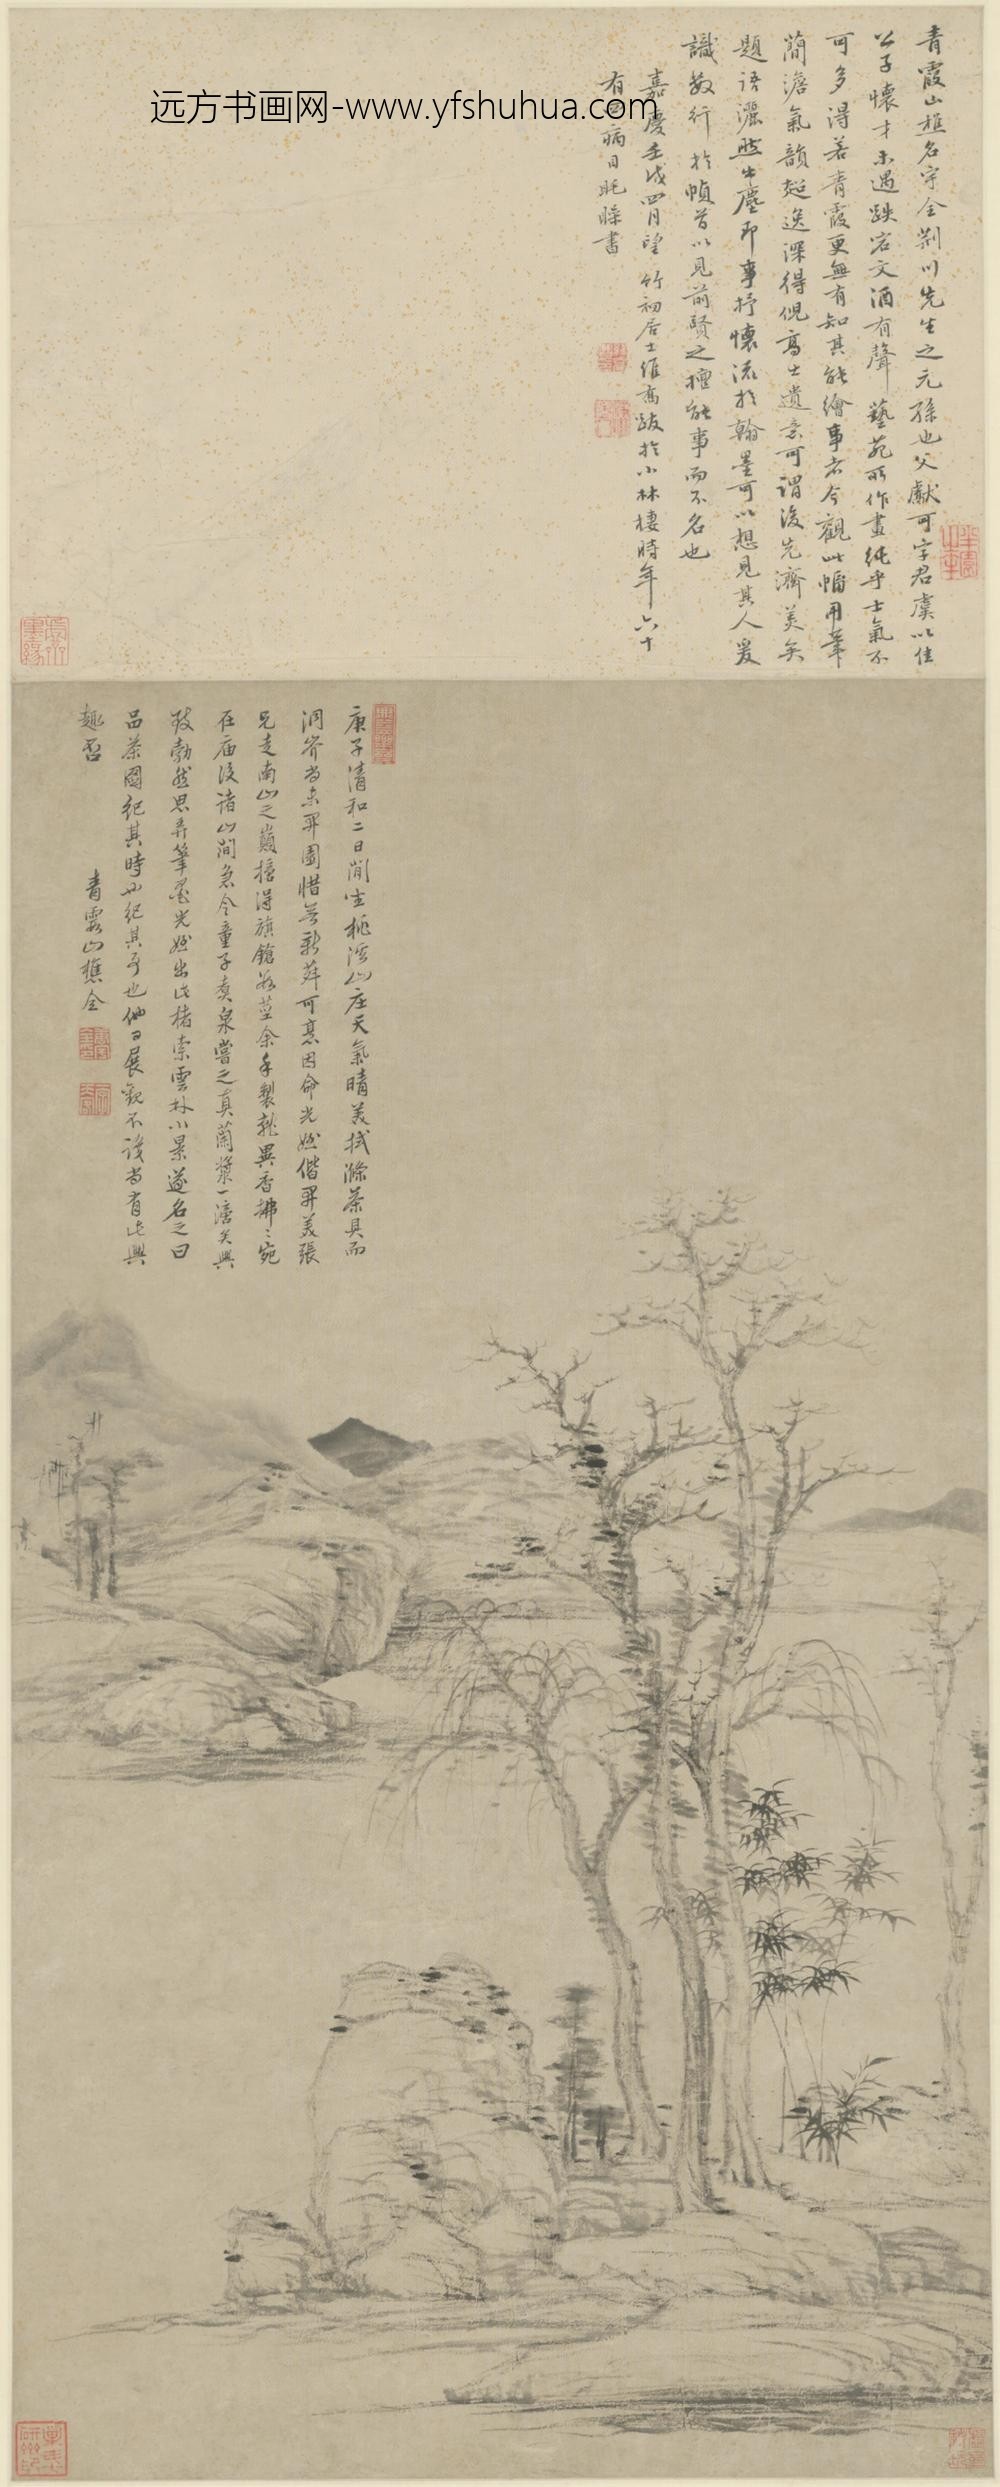 远方书画网-www.yfshuhua.com
青霞山樵名宇全荆川先生之元孫也父獻可字君虞以佳
公子懷才未遇跌宕文酒有聲藝苑所作畫純乎士氣不
可多得若青霞更無有知其能繪事者今觀此幅用筆
簡澹氣韻超逸深得倪高士遺意可謂後先濟美矣
題語灑然出塵即事抒懷流於翰墨可以想見其人爰
識數行於幀首以見前賢之擅能事而不名也
嘉慶壬戌四月望竹初居士維喬跋於小林棲時年六十
有 病目眊瞭書
庚子清和二日閒坐桃溪山庄天氣晴美拭滌茶具而
洞岕尚未開園惜無新蕣可烹因命光 偕羽美張
兄走南山之巔擔得旗鎗數莖余手製就異香拂拂宛
在庙後諸山間急令童子煑泉嘗之真蘭漿一 矣興
致勃然思弄筆墨光 出此楮索雲林小景遂名之曰
品茶圖紀其時也紀其事也他日展觀不識尚有此興
趣否
青霞山樵全